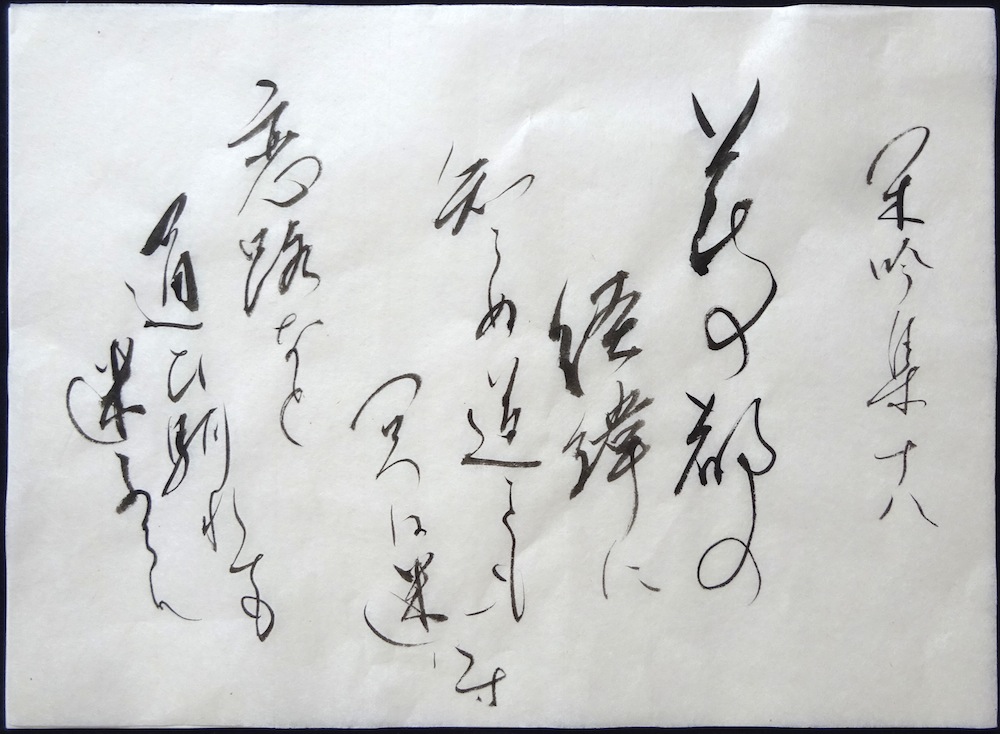 閑吟集十八
花の都の
経緯に
知らぬ道をも
問へは迷はす
恋路なと
通ひ馴れても
迷ふらん